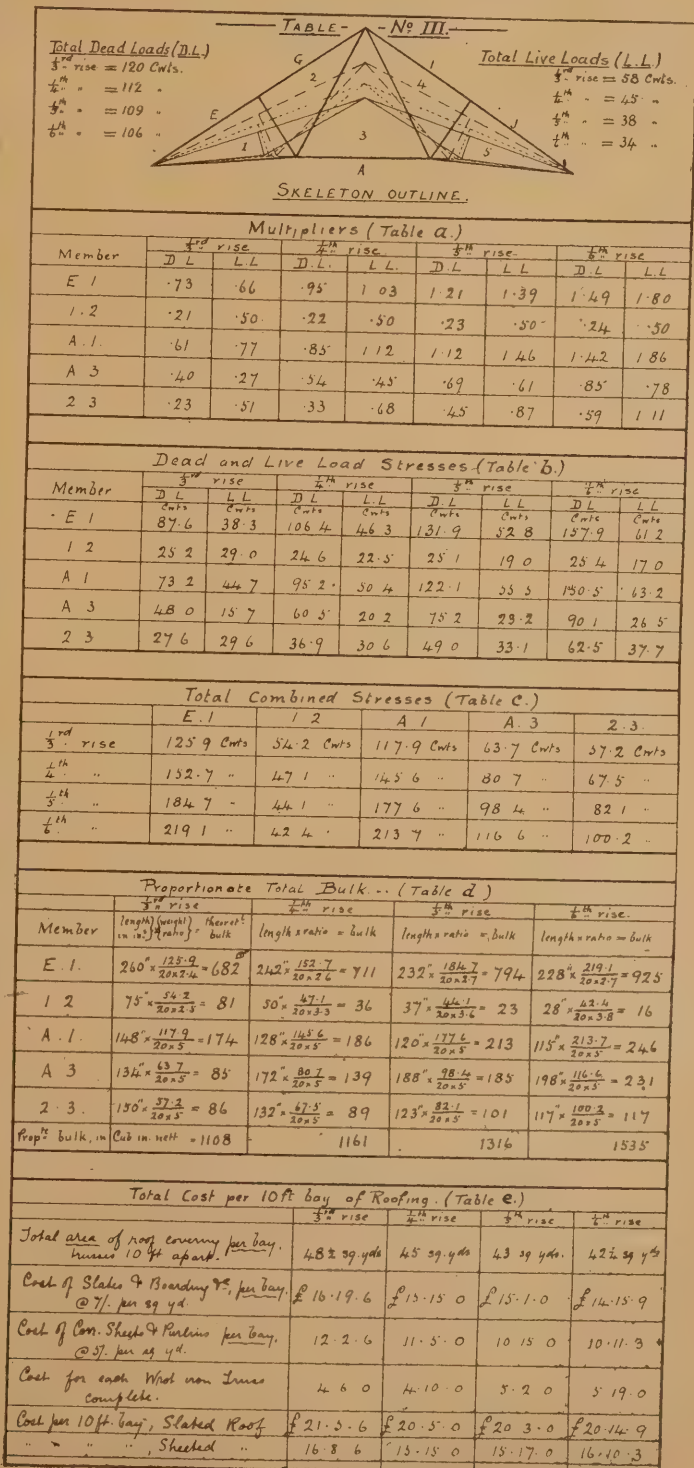 TABLE - Nº III.
Total Dead Loads (D.L.)
1/3rd rise = 120 Cwts.
1/4th " = 112 "
1/5th " = 109 "
1/6th " = 106 "
Total Live Loads (L.L.)
1/3rd rise = 58 Cwts.
1/4th " = 45 "
1/5th " = 38 "
1/6th " = 34 "
G 2 4 I
E 1 3 5 J
A
SKELETON OUTLINE.
Multipliers (Table a.)
Member 1/3rd rise 1/4th rise 1/5th rise 1/6th rise
D L L.L D.L. L L. D.L L.L D.L L.L
E 1 .73 .66 .95 1 03 1.21 1.39 1.49 1.80
1.2 .21 .50 .22 .50 .23 .50 .24 .50
A.1. .61 .77 .85 1 12 1.12 1 46 1.42 1 86
A 3 .40 .27 .54 .45 .69 .61 .85 .78
2 3 .23 .51 .33 .68 .45 .87 .59 1 11
Dead and Live Load Stresses (Table b.)
Member 1/3rd rise 1/4th rise 1/5th rise 1/6th rise
D L L L D L L.L D.L L L D L L L
Cwts Cwts Cwts Cwts Cwts Cwts Cwts Cwts
E 1 87.6 38.3 106 4 46 3 131.9 52 8 157.9 61 2
1 2 25 2 29.0 24 6 22.5 25 1 19 0 25 4 17 0
A 1 73 2 44 7 95 2 50 4 122.1 55 5 150.5 63.2
A 3 48 0 15 7 60 5 20 2 75 2 23.2 90 1 26 5
2 3 27 6 29 6 36.9 30 6 49 0 33.1 62.5 37.7
Total Combined Stresses (Table C.)
E.1 1 2 A 1 A.3 2.3.
1/3rd rise 125 9 Cwts 54.2 Cwts 117.9 Cwts 63.7 Cwts 57.2 Cwts
1/4th " 152.7 " 47 1 " 145 6 " 80 7 " 67.5 "
1/5th " 184 7 " 44 1 " 177 6 " 98 4 " 82 1 "
1/6th " 219 1 " 42 4 " 213 7 " 116 6 " 100.2 "
Proportionate Total Bulk... (Table d)
Member 1/3rd rise 1/4th rise 1/5th rise 1/6th rise.
(length in ins) x (weight ratio) = theoretl bulk length x ratio = bulk length x ratio = bulk length x ratio = bulk
E.1. 260" x 125.9/20x2.4 = 682 242" x 152.7/20x2.6 = 711 232" x 184.7/20x2.7 = 794 228" x 219.1/20x2.7 = 925
1 2 75" x 54.2/20x2.5 = 81 50" x 47.1/20x3.3 = 36 37" x 44.1/20x3.6 = 23 28" x 42.4/20x3.8 = 16
A.1. 148" x 117.9/20x5 = 174 128" x 145.6/20x5 = 186 120" x 177.6/20x5 = 213 115" x 213.7/20x5 = 246
A 3 134" x 63.7/20x5 = 85 172" x 80.7/20x5 = 139 188" x 98.4/20x5 = 185 198" x 116.6/20x5 = 231
2.3. 150" x 57.2/20x5 = 86 132" x 67.5/20x5 = 89 123" x 82.1/20x5 = 101 117" x 100.2/20x5 = 117
Propte bulk, in Cub in. nett = 1108 1161 1316 1535
Total Cost per 10ft bay of Roofing. (Table e.)
1/3rd rise 1/4th rise 1/5th rise 1/6th rise
Total area of roof covering per bay, trusses 10 ft apart. 48½ sq. yds 45 sq. yds 43 sq yds. 42¼ sq yds
Cost of Slates & Boarding &c, per bay. @ 7/. per sq yd. £ 16.19.6 £ 15.15 0 £ 15.1.0 £ 14.15.9
Cost of Corr. Sheets & Purlins per bay. @ 5/. per sq yd. 12.2.6 11.5.0 10 15 0 10.11.3
Cost for each Wrot iron Truss complete. 4 6 0 4.10.0 5.2 0 5 19.0
Cost per 10ft. bay, Slated Roof £ 21.5.6 £ 20.5.0 £ 20 3.0 £ 20.14.9
" " " " , Sheeted " 16.8 6 15.15 0 15.17.0 16.10.3